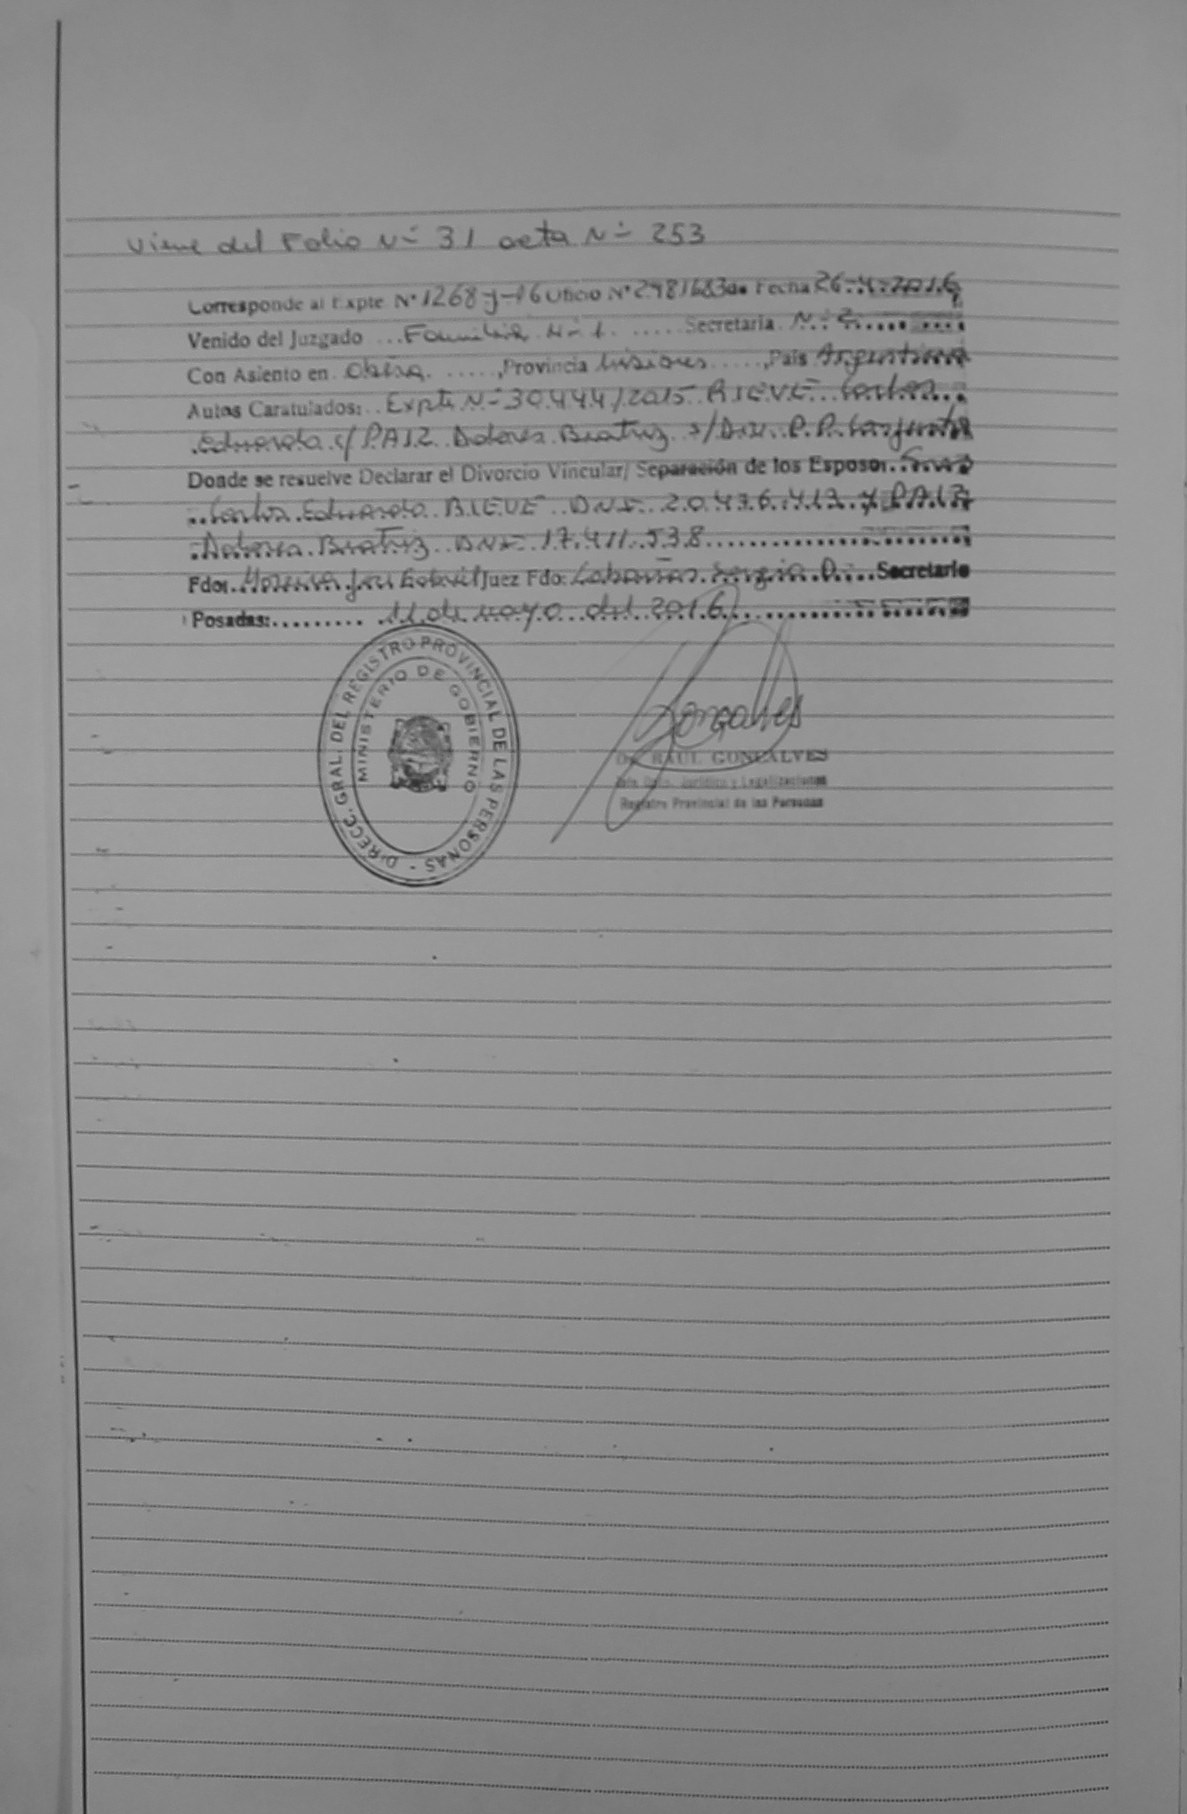 Viene del Folio Nº 31 acta Nº 253
Corresponde al Expte Nº 1268-J-16 Oficio Nº 2481683 de Fecha 26.4.2016
Venido del Juzgado ... Familia Nº 1 ..... Secretaria Nº 2
Con Asiento en Oberá ....., Provincia Misiones ....., País Argentina
Autos Caratulados: Expte Nº 30.444/2015 RIEVE Carlos
Eduardo c/ PAIZ Dolores Beatriz s/ Div. P.P. Conjunta
Donde se resuelve Declarar el Divorcio Vincular/ Separación de los Esposos
Carlos Eduardo RIEVE DNI 20.476.413 y PAIZ
Dolores Beatriz DNI 17.411.538
Fdo: Moreira José Gabriel Juez Fdo: Cabañas Sergio D. Secretario
Posadas: ......... 11 de mayo del 2016
DIRECC. GRAL. DEL REGISTRO PROVINCIAL DE LAS PERSONAS -
MINISTERIO DE GOBIERNO
Gonzalves
Dr. RAUL GONCALVES
Jefe Dpto. Jurídico y Legalizaciones
Registro Provincial de las Personas